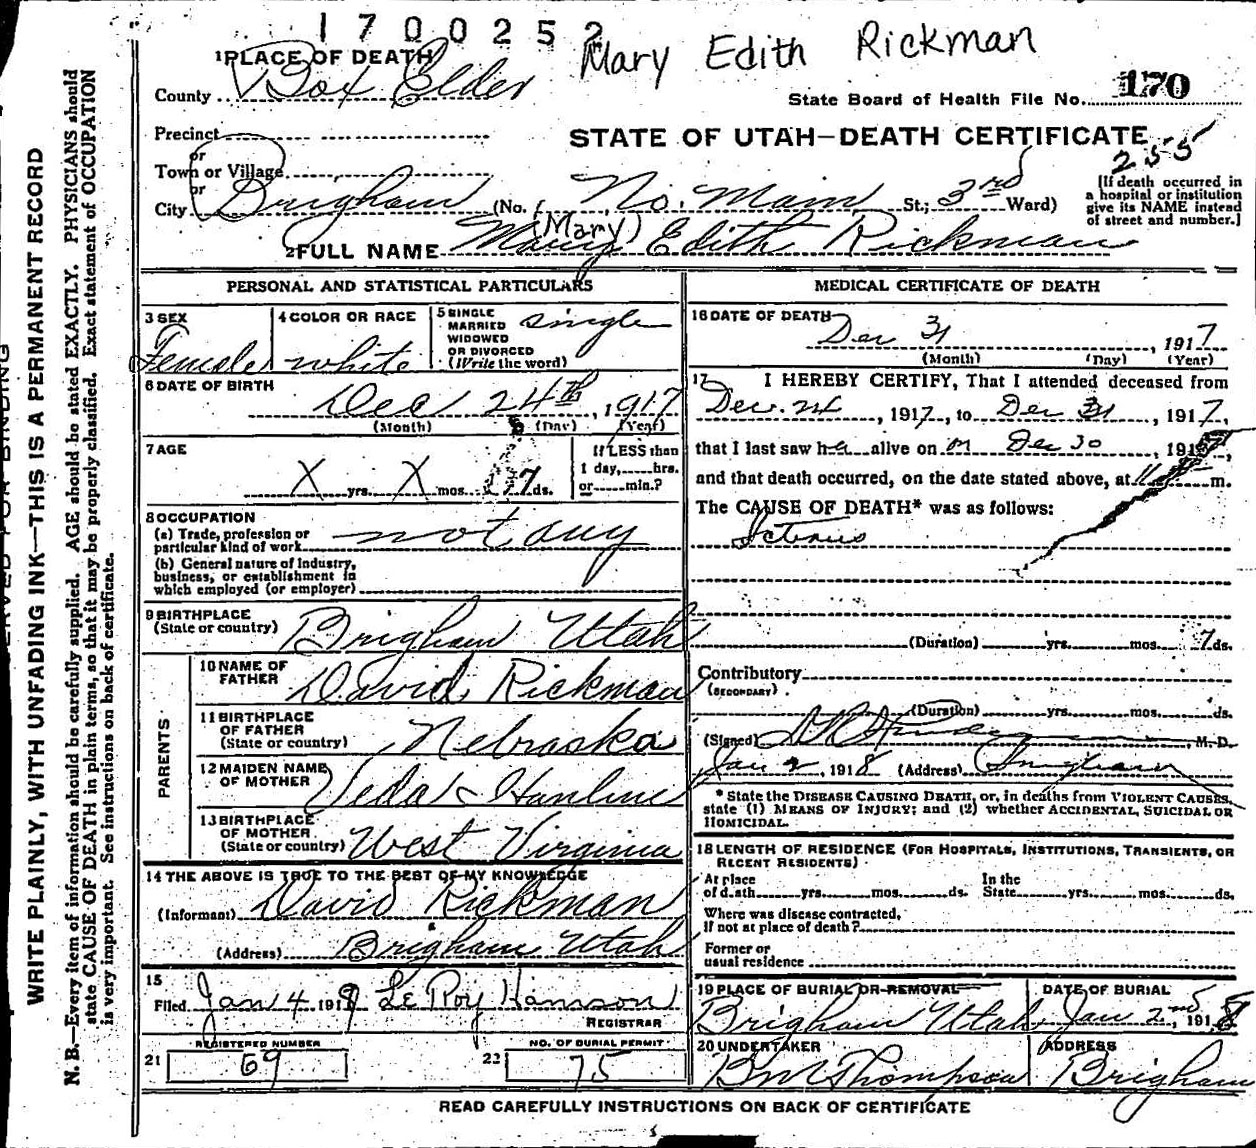 1700252
Mary Edith Rickman
1 PLACE OF DEATH
County Box Elder
State Board of Health File No. 170
Precinct
STATE OF UTAH—DEATH CERTIFICATE
255
or
Town or Village
or
City Brigham (No. No. Main St.; 3rd Ward)
[If death occurred in a hospital or institution give its NAME instead of street and number.]
(Mary)
2 FULL NAME Mary Edith Rickman
PERSONAL AND STATISTICAL PARTICULARS
3 SEX Female
4 COLOR OR RACE white
5 SINGLE MARRIED WIDOWED OR DIVORCED (Write the word) single
6 DATE OF BIRTH Dec 24th, 1917
(Month) (Day) (Year)
7 AGE X yrs. X mos. 7 ds.
If LESS than 1 day, hrs. or min.?
8 OCCUPATION
(a) Trade, profession or particular kind of work not any
(b) General nature of Industry, business, or establishment in which employed (or employer)
9 BIRTHPLACE (State or country) Brigham Utah
PARENTS
10 NAME OF FATHER David Rickman
11 BIRTHPLACE OF FATHER (State or country) Nebraska
12 MAIDEN NAME OF MOTHER Veda Hanline
13 BIRTHPLACE OF MOTHER (State or country) West Virginia
14 THE ABOVE IS TRUE TO THE BEST OF MY KNOWLEDGE
(Informant) David Rickman
(Address) Brigham Utah
15
Filed Jan 4 1918 Le Roy Hanson
REGISTRAR
REGISTERED NUMBER
21 69
NO. OF BURIAL PERMIT
22 75
MEDICAL CERTIFICATE OF DEATH
16 DATE OF DEATH Dec 31, 1917
(Month) (Day) (Year)
17 I HEREBY CERTIFY, That I attended deceased from
Dec. 24, 1917, to Dec 31, 1917,
that I last saw her alive on Dec 30, 191
and that death occurred, on the date stated above, at m.
The CAUSE OF DEATH* was as follows:
Icterus
(Duration) yrs. mos. 7 ds.
Contributory
(SECONDARY)
(Duration) yrs. mos. ds.
(Signed) M. D.
Jan 2, 1918 (Address) Brigham
* State the DISEASE CAUSING DEATH, or, in deaths from VIOLENT CAUSES, state (1) MEANS OF INJURY; and (2) whether ACCIDENTAL, SUICIDAL OR HOMICIDAL.
18 LENGTH OF RESIDENCE (FOR HOSPITALS, INSTITUTIONS, TRANSIENTS, OR RECENT RESIDENTS)
At place of death yrs. mos. ds. In the State yrs. mos. ds.
Where was disease contracted, If not at place of death?
Former or usual residence
19 PLACE OF BURIAL OR REMOVAL
Brigham Utah
DATE OF BURIAL
Jan 2nd, 1918
20 UNDERTAKER
B M Thompson
ADDRESS
Brigham
READ CAREFULLY INSTRUCTIONS ON BACK OF CERTIFICATE
WRITE PLAINLY, WITH UNFADING INK—THIS IS A PERMANENT RECORD
N. B.—Every item of information should be carefully supplied. AGE should be stated EXACTLY. PHYSICIANS should
state CAUSE OF DEATH in plain terms, so that it may be properly classified. Exact statement of OCCUPATION
is very important. See instructions on back of certificate.